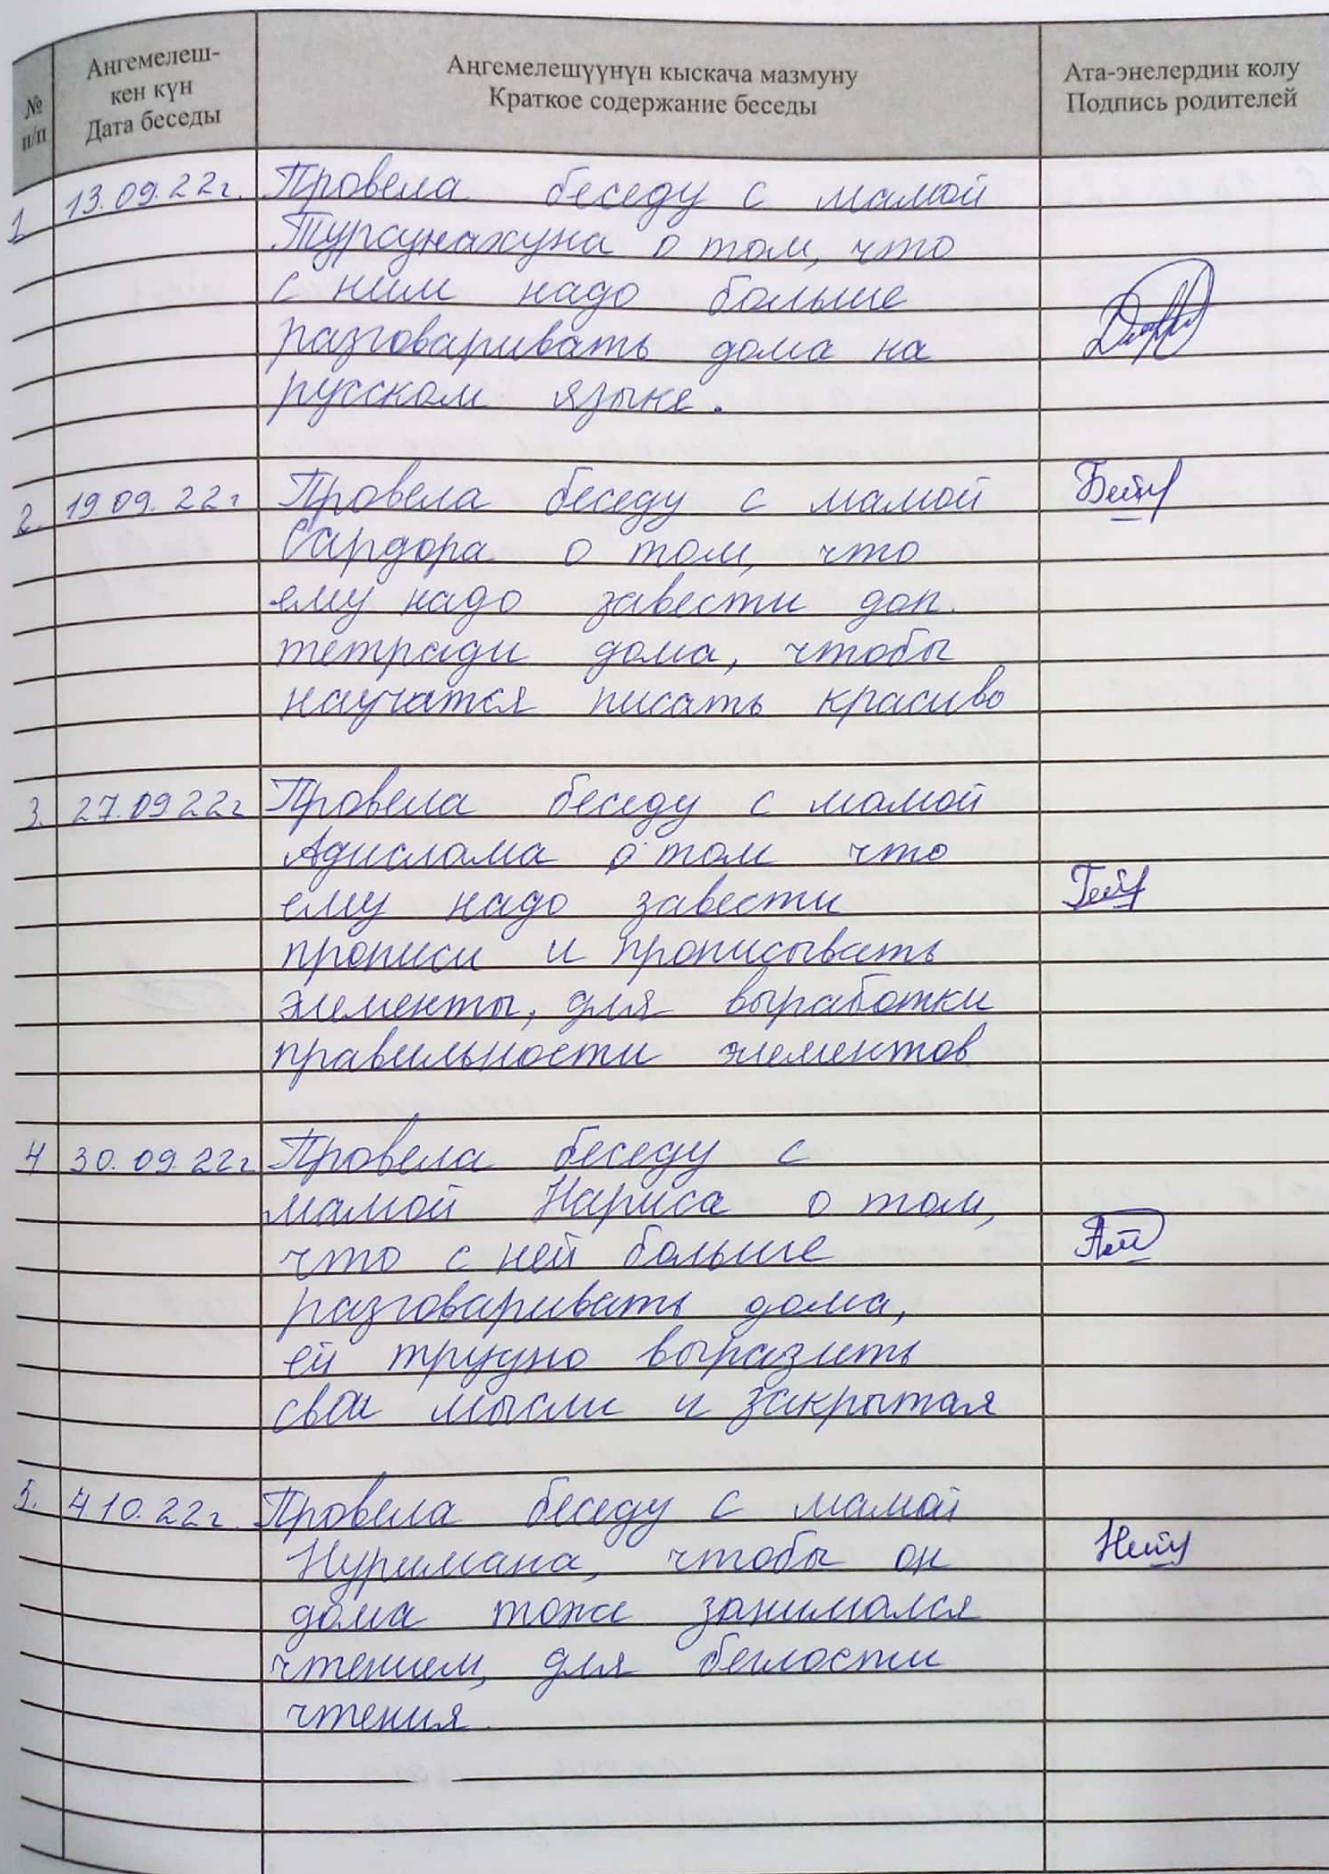 №
п/п
Аңгемелеш-
кен күн
Дата беседы
Аңгемелешүүнүн кыскача мазмуну
Краткое содержание беседы
Ата-энелердин колу
Подпись родителей
1 13.09.22г. Провела беседу с мамой
Турсунахуна о том, что
с ним надо больше
разговаривать дома на
русском языке.
2. 19 09. 22г Провела беседу с мамой
Сардора о том, что
ему надо завести доп.
тетради дома, чтобы
научатся писать красиво
3. 27.09 22г Провела беседу с мамой
Адислама о том что
ему надо завести
прописи и прописывать
элементы, для выработки
правильности элементов
4 30. 09. 22г Провела беседу с
мамой Нариса о том,
что с ней больше
разговаривать дома,
ей трудно выразить
свои мысли и закрытая
5. 4 10. 22г. Провела беседу с мамой
Нуримана, чтобы он
дома тоже занимался
чтением, для беглости
чтения.